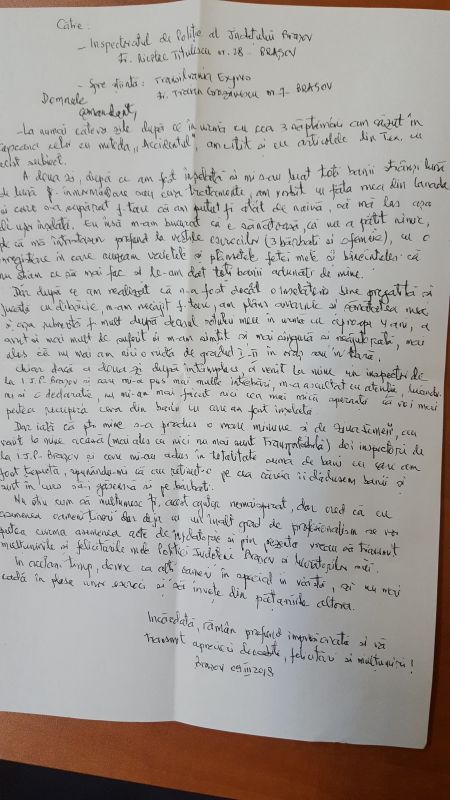 Către:
- Inspectoratul de Poliție al Județului Brașov
Str. Nicolae Titulescu nr. 28 - BRAȘOV
- Spre știință: Transilvania Expres
Str. Traian Grozăvescu nr. 7 - BRAȘOV
Domnule
comandant,
- La numai câteva zile după ce în urmă cu cca 3 săptămâni am căzut în
capcana celor cu metoda „Accidentul", am citit și eu articolele din Tex, cu
acest subiect.
A doua zi, după ce am fost înșelată și mi s-au luat toți banii strânși lună
de lună pt. înmormântare sau ceva tratamente, am vorbit cu fata mea din Canada
și care s-a supărat f. tare că am putut fi atât de naivă, să mă las așa
de ușor înșelată. Eu însă m-am bucurat că e sănătoasă, că nu a pățit nimic,
pt. că mă întristasem profund la veștile escrocilor (3 bărbați și o femeie), cu o
înregistrare în care auzeam vaietele și plânsetele fetei mele și bineînțeles că
nu știam ce să mai fac și le-am dat toți banii adunați de mine.
Dar după ce am realizat că n-a fost decât o înșelătorie bine pregătită și
jucată cu dibăcie, m-am necăjit f. tare, am plâns amarnic și sănătatea mea
și așa șubredă f. mult după decesul soțului meu în urmă cu aproape 4 ani, a
avut și mai mult de suferit și m-am simțit și mai singură și neajutorată, mai
ales că nu mai am nici o rudă de gradul I-II în oraș sau în țară.
Chiar dacă a doua zi după întâmplare a venit la mine un inspector de
la I.J.P. Brașov și care mi-a pus mai multe întrebări, m-a ascultat cu atenție, luându-
mi și o declarație, nu mi-am mai făcut nici cea mai mică speranță că voi mai
putea recupera ceva din banii cu care am fost înșelată.
Dar iată că pt. mine s-a produs o mare minune și de ziua femeii, au
venit la mine acasă (mai ales că nici nu mai sunt transportabilă) doi inspectori de
la I.J.P. Brașov și care mi-au adus în totalitate suma de bani cu care am
fost țepuită, spunându-mi că au reținut-o pe cea căreia îi dădusem banii și
sunt în curs să-i găsească și pe bărbați.
Nu știu cum să mulțumesc pt. acest ajutor nemaisperat, dar cred că cu
asemenea oameni tineri dar deja cu un înalt grad de profesionalism se vor
putea curma asemenea acte de înșelătorie și prin prezenta vreau să transmit
mulțumirile și felicitările mele Poliției Județene Brașov și lucrătorilor săi.
În același timp, doresc ca alți oameni în special în vârstă, să nu mai
cadă în plasa unor escroci și să învețe din pățaniile altora.
Încă odată, rămân profund impresionată și vă
transmit aprecieri deosebite, felicitări și mulțumiri!
Brașov 09.III.2018